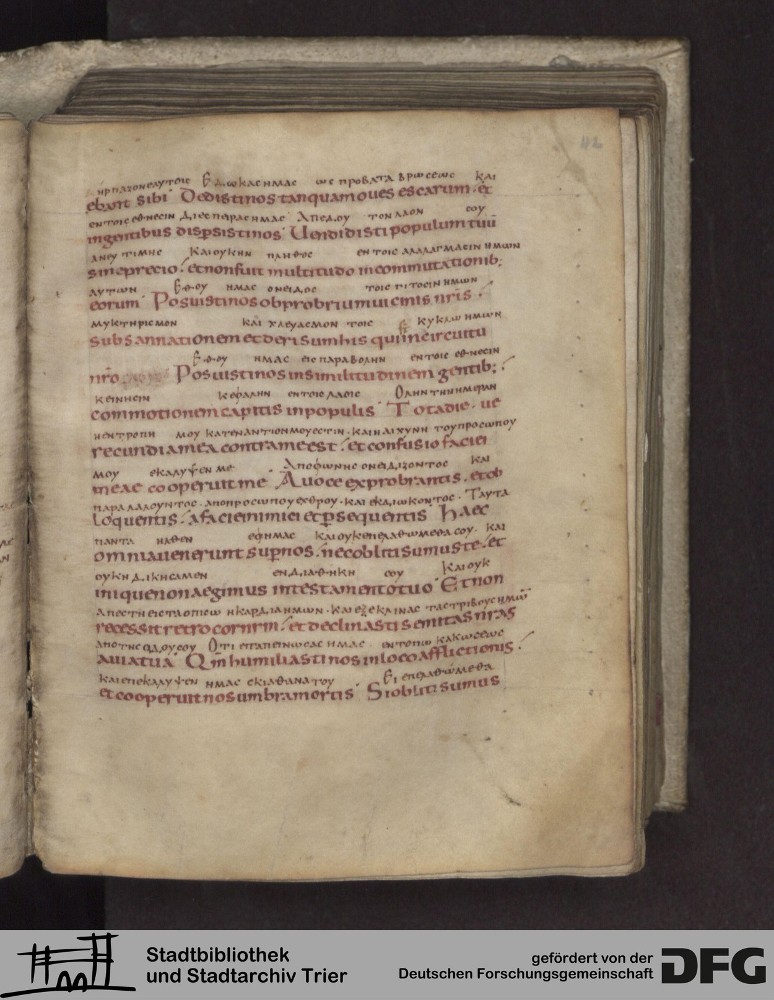 42
ΗΡΠΑΖΟΝ ΕΑΥΤΟΙС ΕΔΩΚΑС ΗΜΑС ΩС ΠΡΟΒΑΤΑ ΒΡΩСΕΩС ΚΑΙ
ebant sibi Dedisti nos tanquam oues escarum · et
ΕΝ ΤΟΙС ΕΘΝΕСΙΝ ΔΙΕСΠΕΙΡΑС ΗΜΑС ΑΠΕΔΟΥ ΤΟΝ ΛΑΟΝ СΟΥ
ingentibus dispsisti nos Uendidisti populum tuū
ΑΝΕΥ ΤΙΜΗС ΚΑΙ ΟΥΚ ΗΝ ΠΛΗΘΟС ΕΝ ΤΟΙС ΑΛΑΛΑΓΜΑСΙΝ ΗΜΩΝ
sine precio et non fuit multitudo in commutationib;
ΑΥΤΩΝ ΕΘΟΥ ΗΜΑС ΟΝΕΙΔΟС ΤΟΙС ΓΙΤΟСΙΝ ΗΜΩΝ
eorum Posuisti nos obprobrium uicinis nris
ΜΥΚΤΗΡΙСΜΟΝ ΚΑΙ ΧΛΕΥΑСΜΟΝ ΤΟΙС ΚΥΚΛΩ ΗΜΩΝ
subsannationem et derisum his qui in circuitu
ΕΘΟΥ ΗΜΑС ΕΙС ΠΑΡΑΒΟΛΗΝ ΕΝ ΤΟΙС ΕΘΝΕСΙΝ
nro Posuisti nos in similitudinem gentib;
ΚΕΙΝΗСΙΝ ΚΕΦΑΛΗΝ ΕΝ ΤΟΙС ΛΑΟΙС ΟΛΗΝ ΤΗΝ ΗΜΕΡΑΝ
commotionem capitis in populis Tota die · ue
Η ΕΝΤΡΟΠΗ ΜΟΥ ΚΑΤΕΝΑΝΤΙΟΝ ΜΟΥ ΕСΤΙΝ · ΚΑΙ Η ΑΙΧΥΝΗ ΤΟΥ ΠΡΟСΩΠΟΥ
recundia mea contra me est et confusio faciei
ΜΟΥ ΕΚΑΛΥΨΕΝ ΜΕ ΑΠΟ ΦΩΝΗС ΟΝΕΙΔΙΖΟΝΤΟС ΚΑΙ
meae cooperuit me A uoce exprobrantis · et ob
ΠΑΡΑΛΑΛΟΥΝΤΟС · ΑΠΟ ΠΡΟСΩΠΟΥ ΕΧΘΡΟΥ · ΚΑΙ ΕΚΔΙΩΚΟΝΤΟС · ΤΑΥΤΑ
loquentis a facie inimici et psequentis Haec
ΠΑΝΤΑ ΗΛΘΕΝ ΕΦ ΗΜΑС ΚΑΙ ΟΥΚ ΕΠΕΛΑΘΩΜΕΘΑ СΟΥ · ΚΑΙ
omnia uenerunt sup nos nec obliti sumus te · et
ΟΥΚ ΗΔΙΚΗСΑΜΕΝ ΕΝ ΔΙΑΘΗΚΗ СΟΥ ΚΑΙ ΟΥΚ
inique non aegimus in testamento tuo Et non
ΑΠΕСΤΗ ΕΙС ΤΑ ΟΠΙСΩ Η ΚΑΡΔΙΑ ΗΜΩΝ · ΚΑΙ ΕΞΕΚΛΙΝΑС ΤΑС ΤΡΙΒΟΥС ΗΜΩΝ
recessit retro cor nrm et declinasti semitas nras
ΑΠΟ ΤΗС ΟΔΟΥ СΟΥ ΟΤΙ ΕΤΑΠΕΙΝΩСΑС ΗΜΑС · ΕΝ ΤΟΠΩ ΚΑΚΩСΕΩС
a uia tua Qm humiliasti nos in loco afflictionis
ΚΑΙ ΕΠΕΚΑΛΥΨΕΝ ΗΜΑС СΚΙΑ ΘΑΝΑΤΟΥ ΕΙ ΕΠΕΛΑΘΩΜΕΘΑ
et cooperuit nos umbra mortis Si obliti sumus
Stadtbibliothek
und Stadtarchiv Trier
gefördert von der
Deutschen Forschungsgemeinschaft
DFG